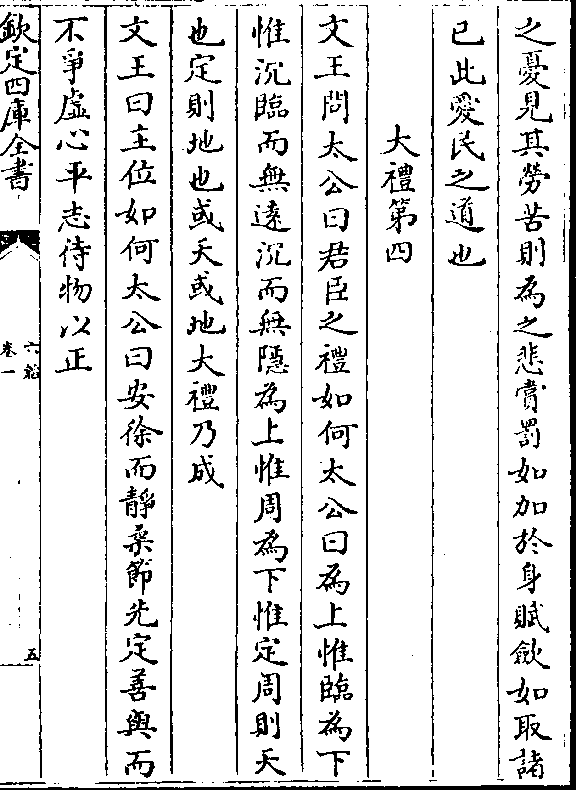 之憂見其勞苦則為之悲賞罰如加於身賦斂如取諸
已此愛民之道也
大禮第四
文王問太公曰君臣之禮如何太公曰為上惟臨為下
惟沉臨而無遠沉而無隱為上惟周為下惟定周則天
也定則地也或天或地大禮乃成
文王曰主位如何太公曰安徐而靜柔節先定善與而
不爭虛心平志待物以正
欽定四庫全書
六韜
卷一
五